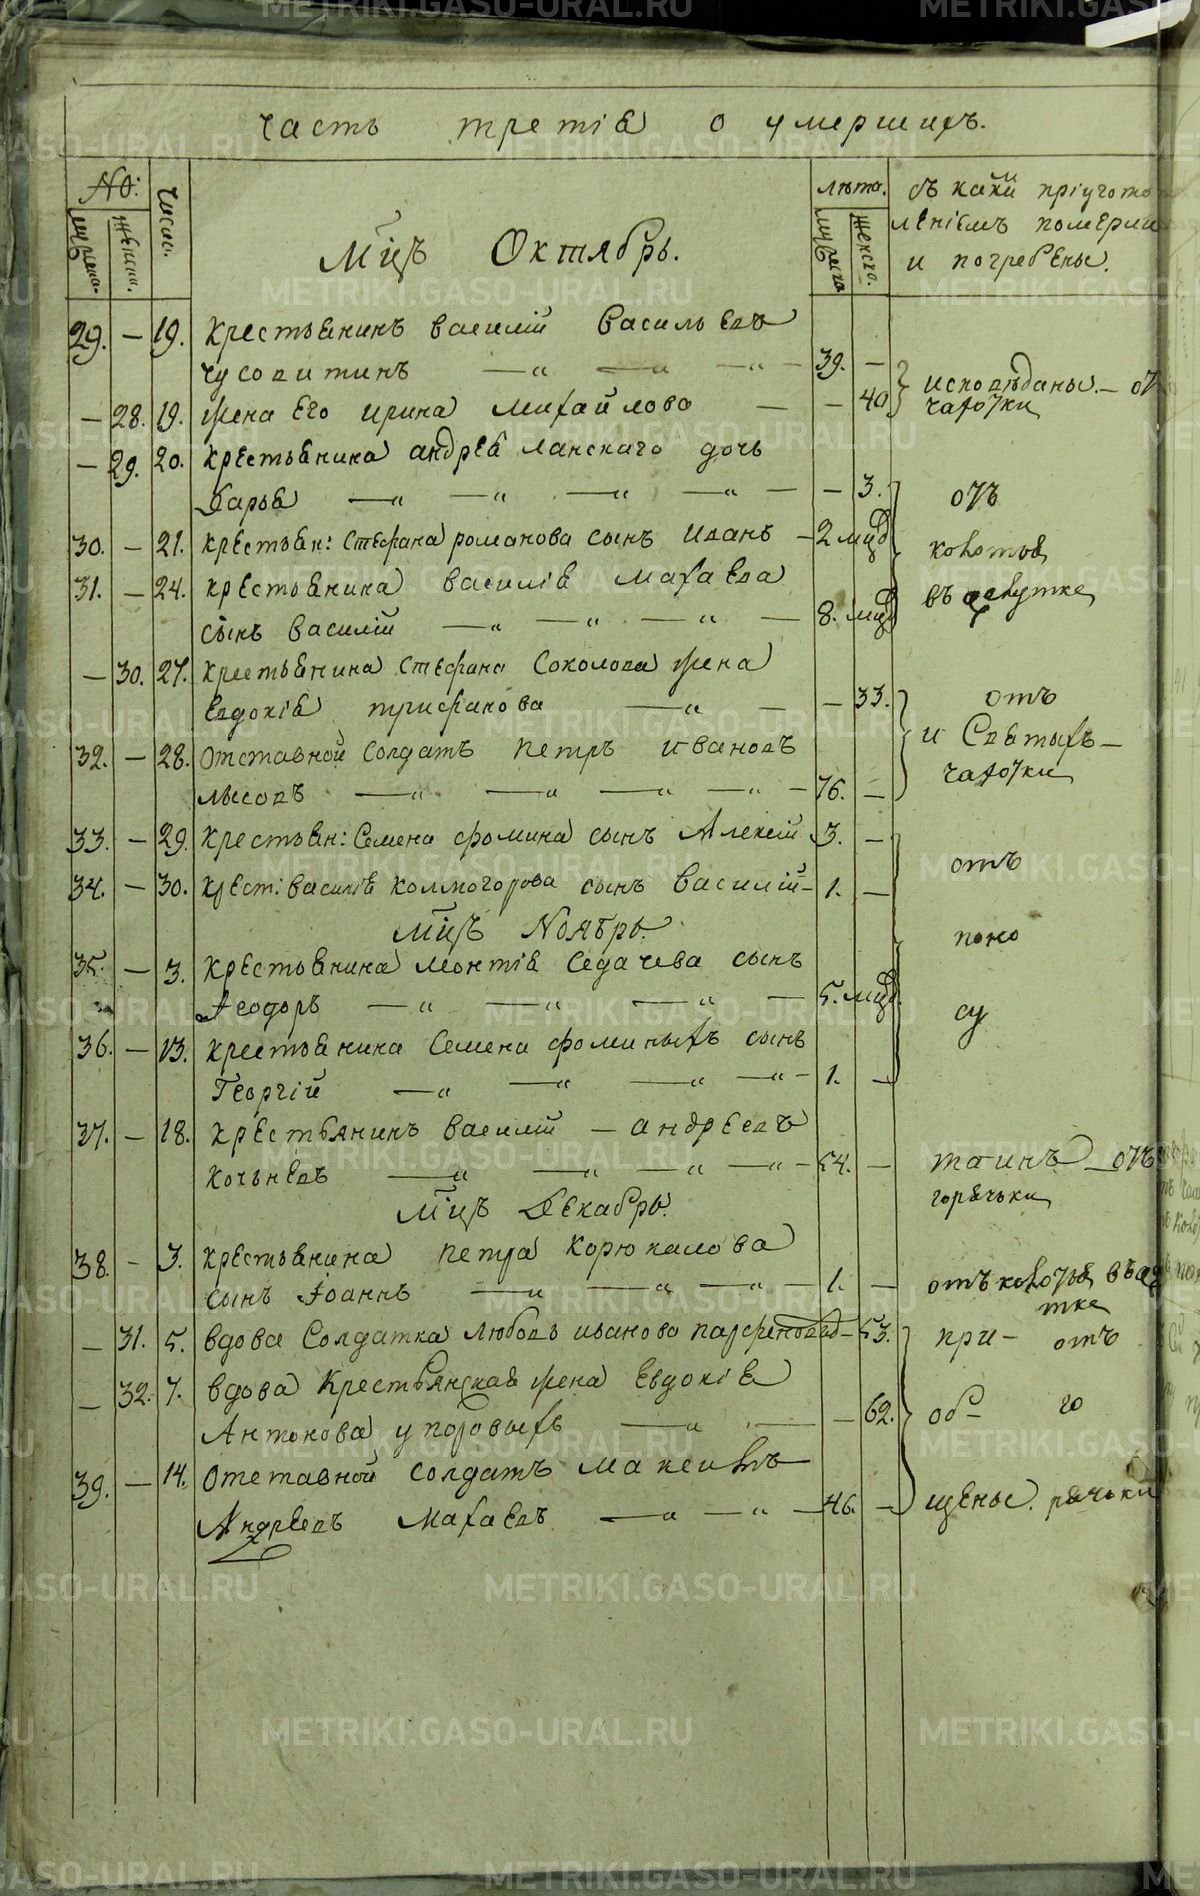 Часть третія о умершихъ.
№: Числ. лѣта. съ какй пріугото
мужеска. женска. мужеска. женска. вленіемъ померли
Мцъ Октябрь. и погребены.
29. — 19. Крестьянинъ Василій Васильевъ
Чусовитинъ — 39. —
— 28. 19. Жена Его Ирина Михайлова — — 40 исповѣданы. — от
чахотки
— 29. 20. Крестьянина Андрея Ланскаго дочь
Дарья — — 3. отъ
30. — 21. Крестьян: Стефана Романова сынъ Иванъ — 2 мцъ колотья
31. — 24. Крестьянина Василія Махаева
сынъ Василій — 8. мцъ въ
— 30. 27. Крестьянина Стефана Соколова жена
Евдокія Трифанова — — 33. отъ
32. — 28. Отставной Солдатъ Петръ Ивановъ и Святыхъ —
Лысовъ — 76. — чахотки
33. — 29. Крестьян: Семена Фомина сынъ Алексѣй 3. —
34. — 30. Крест: Василія Колмогорова сынъ Василій — 1. — отъ
Мцъ Ноябрь. поно
35. — 3. Крестьянина Монтія Седачева сынъ
Ѳеодоръ — 5. мцъ су
36. — 13. Крестьянина Семена Фоминыхъ сынъ
Георгій — 1. —
37. — 18. Крестьянинъ Василій — Андреевъ
Кочьневъ — 54. — таинъ — отъ
горячьки
Мцъ Декабрь.
38. — 3. Крестьянина Петра Корюкалова
сынъ Іоаннъ — 1. — отъ колотья въ
тке
— 31. 5. Вдова Солдатка Любовь Иванова — 53. при — отъ
— 32. 7. Вдова Крестьянская жена Евдокія
Антонова Упоровыхъ — — 62. об — го
39. — 14. Отставной Солдатъ Максимъ
Андреевъ Махаевъ — 46. — щены. рячьки
METRIKI.GASO-URAL.RU